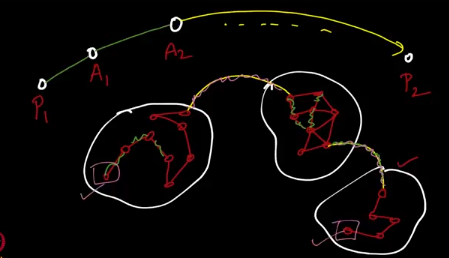 P1 A1 A2 P2